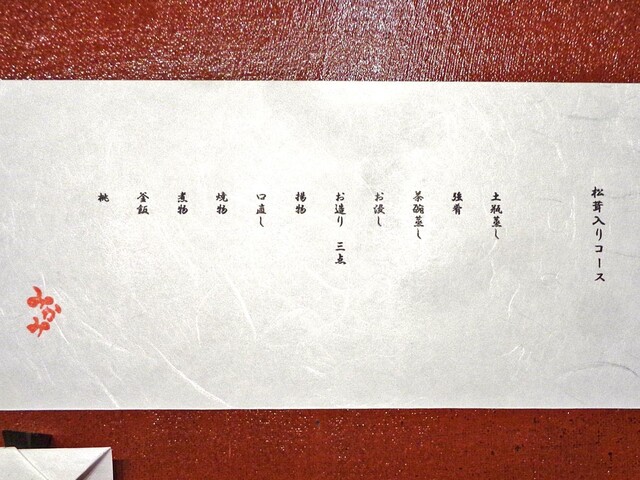 松茸入りコース
土瓶蒸し
強肴
茶碗蒸し
お浸し
お造り 三点
揚物
口直し
焼物
煮物
釜飯
桃
みかみ